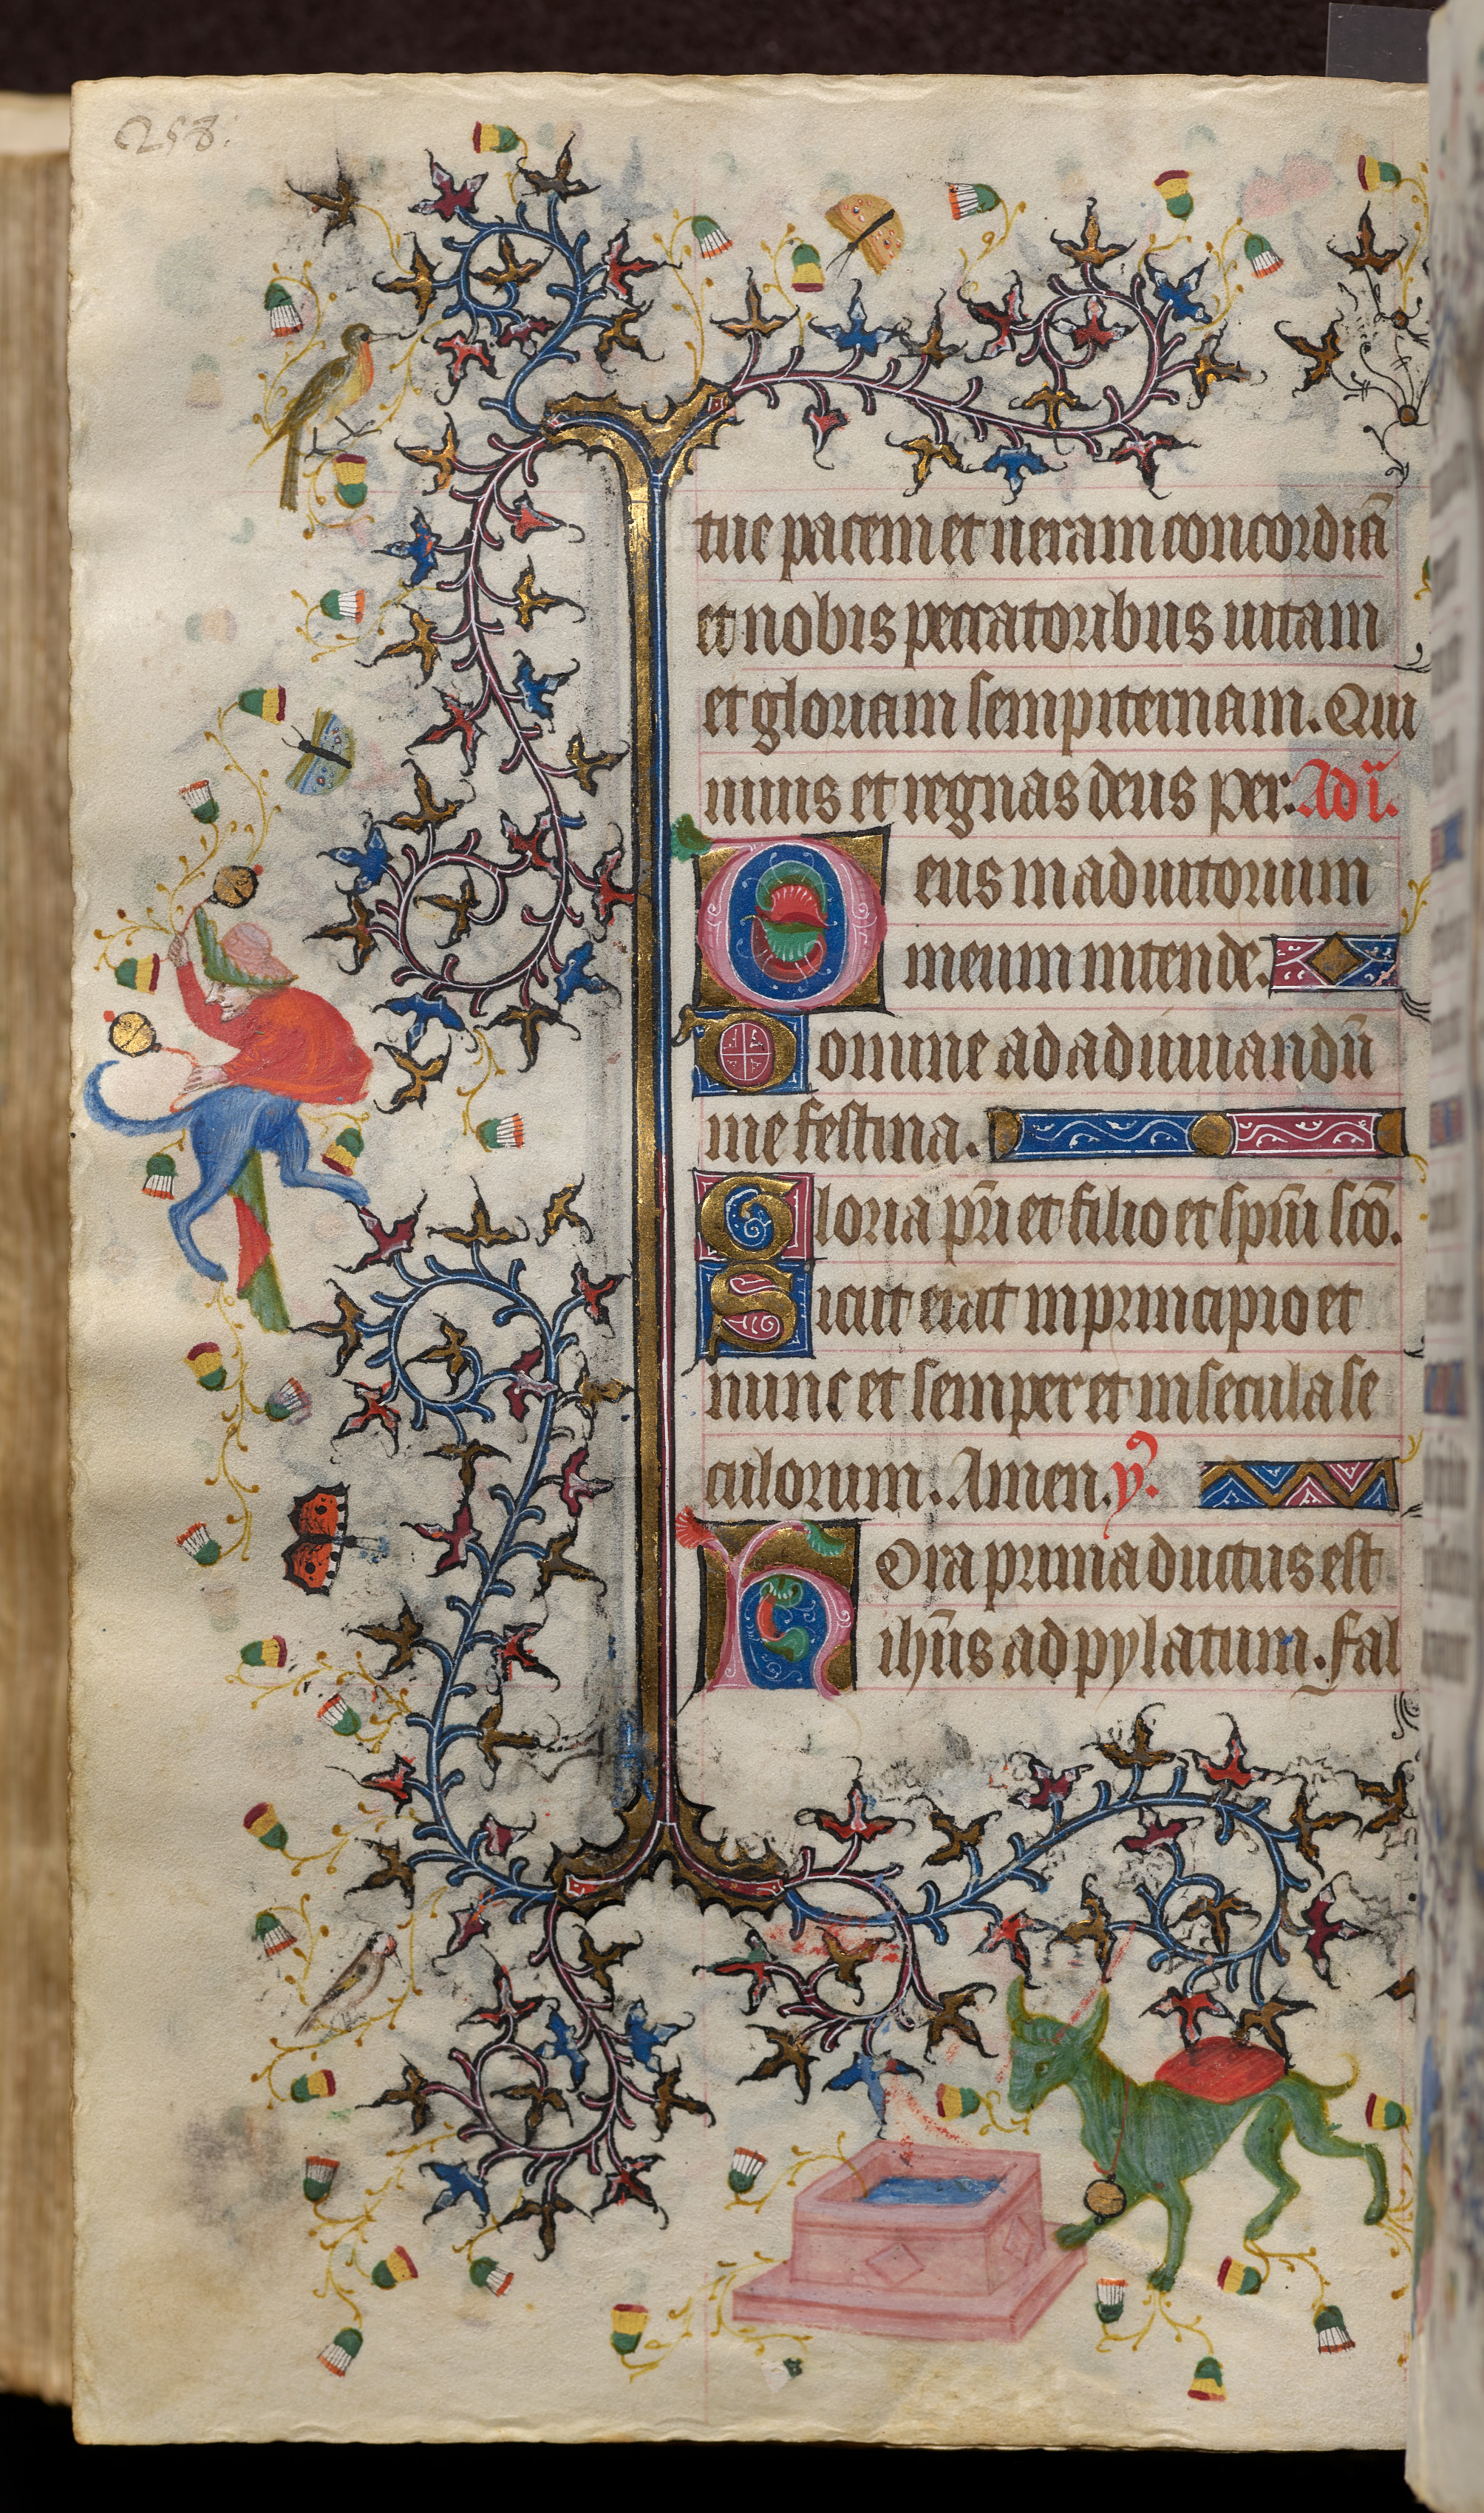 258.
tue pacem et ueram concordiā
et nobis peccatoribus uitam
et gloriam sempiternam. Qui
uiuis et regnas deus per: Ad i͞.
Deus in adiutorium
meum intende.
Domine ad adiuuandū
me festina.
Gloria pr̄i et filio et spūi sc̄o.
Sicut erat in principio et
nunc et semper et in secula se
culorum. Amen. ẏ.
Hora prima ductus est
ih̄us ad pylatum. fal